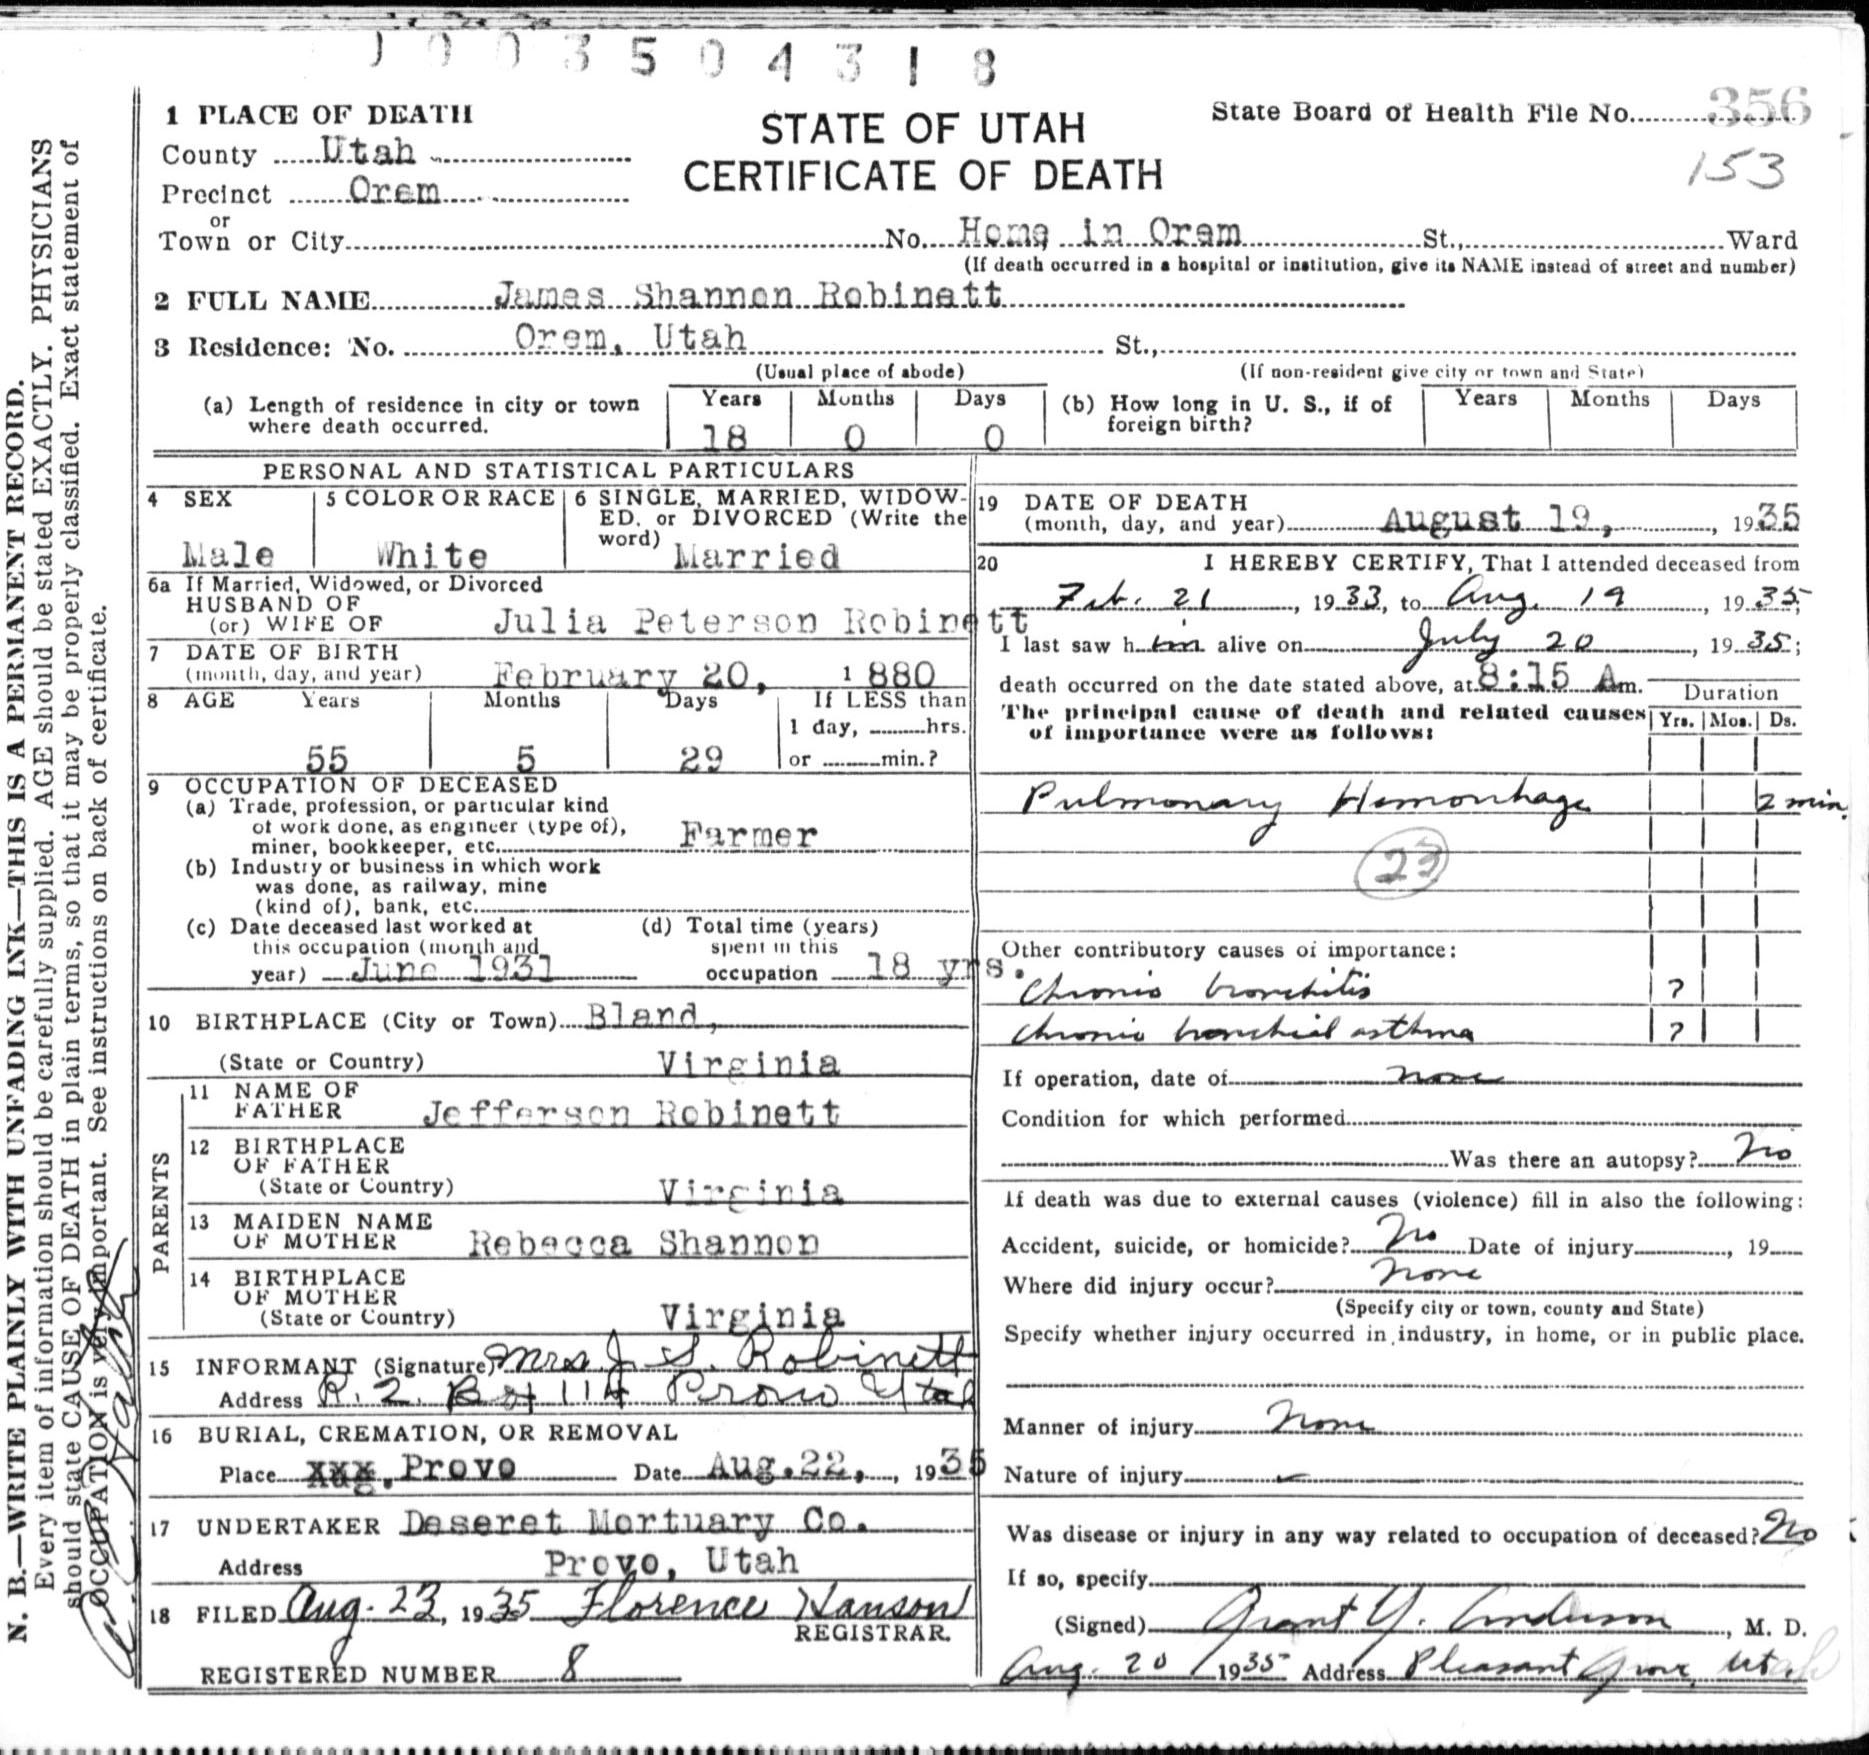 1 0 0 3 5 0 4 3 1 8
1 PLACE OF DEATH
County Utah
Precinct Orem
or
Town or City
STATE OF UTAH
CERTIFICATE OF DEATH
State Board of Health File No. 356
153
No. Home in Orem St., Ward
(If death occurred in a hospital or institution, give its NAME instead of street and number)
2 FULL NAME James Shannon Robinett
3 Residence: No. Orem, Utah St.,
(Usual place of abode) (If non-resident give city or town and State)
(a) Length of residence in city or town
where death occurred.
Years Months Days
18 0 0
(b) How long in U. S., if of
foreign birth?
Years Months Days
PERSONAL AND STATISTICAL PARTICULARS
4 SEX
Male
5 COLOR OR RACE
White
6 SINGLE, MARRIED, WIDOW-
ED, or DIVORCED (Write the
word)
Married
6a If Married, Widowed, or Divorced
HUSBAND OF
(or) WIFE OF Julia Peterson Robinett
7 DATE OF BIRTH
(month, day, and year) February 20, 1 880
8 AGE Years Months Days If LESS than
1 day, hrs.
55 5 29 or min.?
9 OCCUPATION OF DECEASED
(a) Trade, profession, or particular kind
of work done, as engineer (type of),
miner, bookkeeper, etc. Farmer
(b) Industry or business in which work
was done, as railway, mine
(kind of), bank, etc.
(c) Date deceased last worked at
this occupation (month and
year) June 1931
(d) Total time (years)
spent in this
occupation 18 yrs.
10 BIRTHPLACE (City or Town) Bland,
(State or Country) Virginia
PARENTS
11 NAME OF
FATHER Jefferson Robinett
12 BIRTHPLACE
OF FATHER
(State or Country) Virginia
13 MAIDEN NAME
OF MOTHER Rebecca Shannon
14 BIRTHPLACE
OF MOTHER
(State or Country) Virginia
15 INFORMANT (Signature) Mrs J. S. Robinett
Address R. 2. Box 114 Provo Utah
16 BURIAL, CREMATION, OR REMOVAL
Place xxx. Provo Date Aug.22, , 1935
17 UNDERTAKER Deseret Mortuary Co.
Address Provo, Utah
18 FILED Aug. 23, 1935 Florence Hanson
REGISTRAR.
REGISTERED NUMBER 8
19 DATE OF DEATH
(month, day, and year) August 19, , 1935
20 I HEREBY CERTIFY, That I attended deceased from
Feb. 21 , 1933, to Aug. 19 , 1935;
I last saw him alive on July 20 , 1935;
death occurred on the date stated above, at 8:15 Am.
Duration
The principal cause of death and related causes
of importance were as follows:
Yrs. Mos. Ds.
Pulmonary Hemorrhage 2 min.
23
Other contributory causes of importance:
Chronic bronchitis ?
chronic bronchial asthma ?
If operation, date of none
Condition for which performed
Was there an autopsy? No
If death was due to external causes (violence) fill in also the following:
Accident, suicide, or homicide? No Date of injury , 19
Where did injury occur? none
(Specify city or town, county and State)
Specify whether injury occurred in industry, in home, or in public place.
Manner of injury None
Nature of injury
Was disease or injury in any way related to occupation of deceased? No
If so, specify
(Signed) Grant Y. Anderson , M. D.
Aug. 20 1935 Address Pleasant Grove, Utah
N. B.—WRITE PLAINLY WITH UNFADING INK—THIS IS A PERMANENT RECORD.
Every item of information should be carefully supplied. AGE should be stated EXACTLY. PHYSICIANS
should state CAUSE OF DEATH in plain terms, so that it may be properly classified. Exact statement of
OCCUPATION is very important. See instructions on back of certificate.